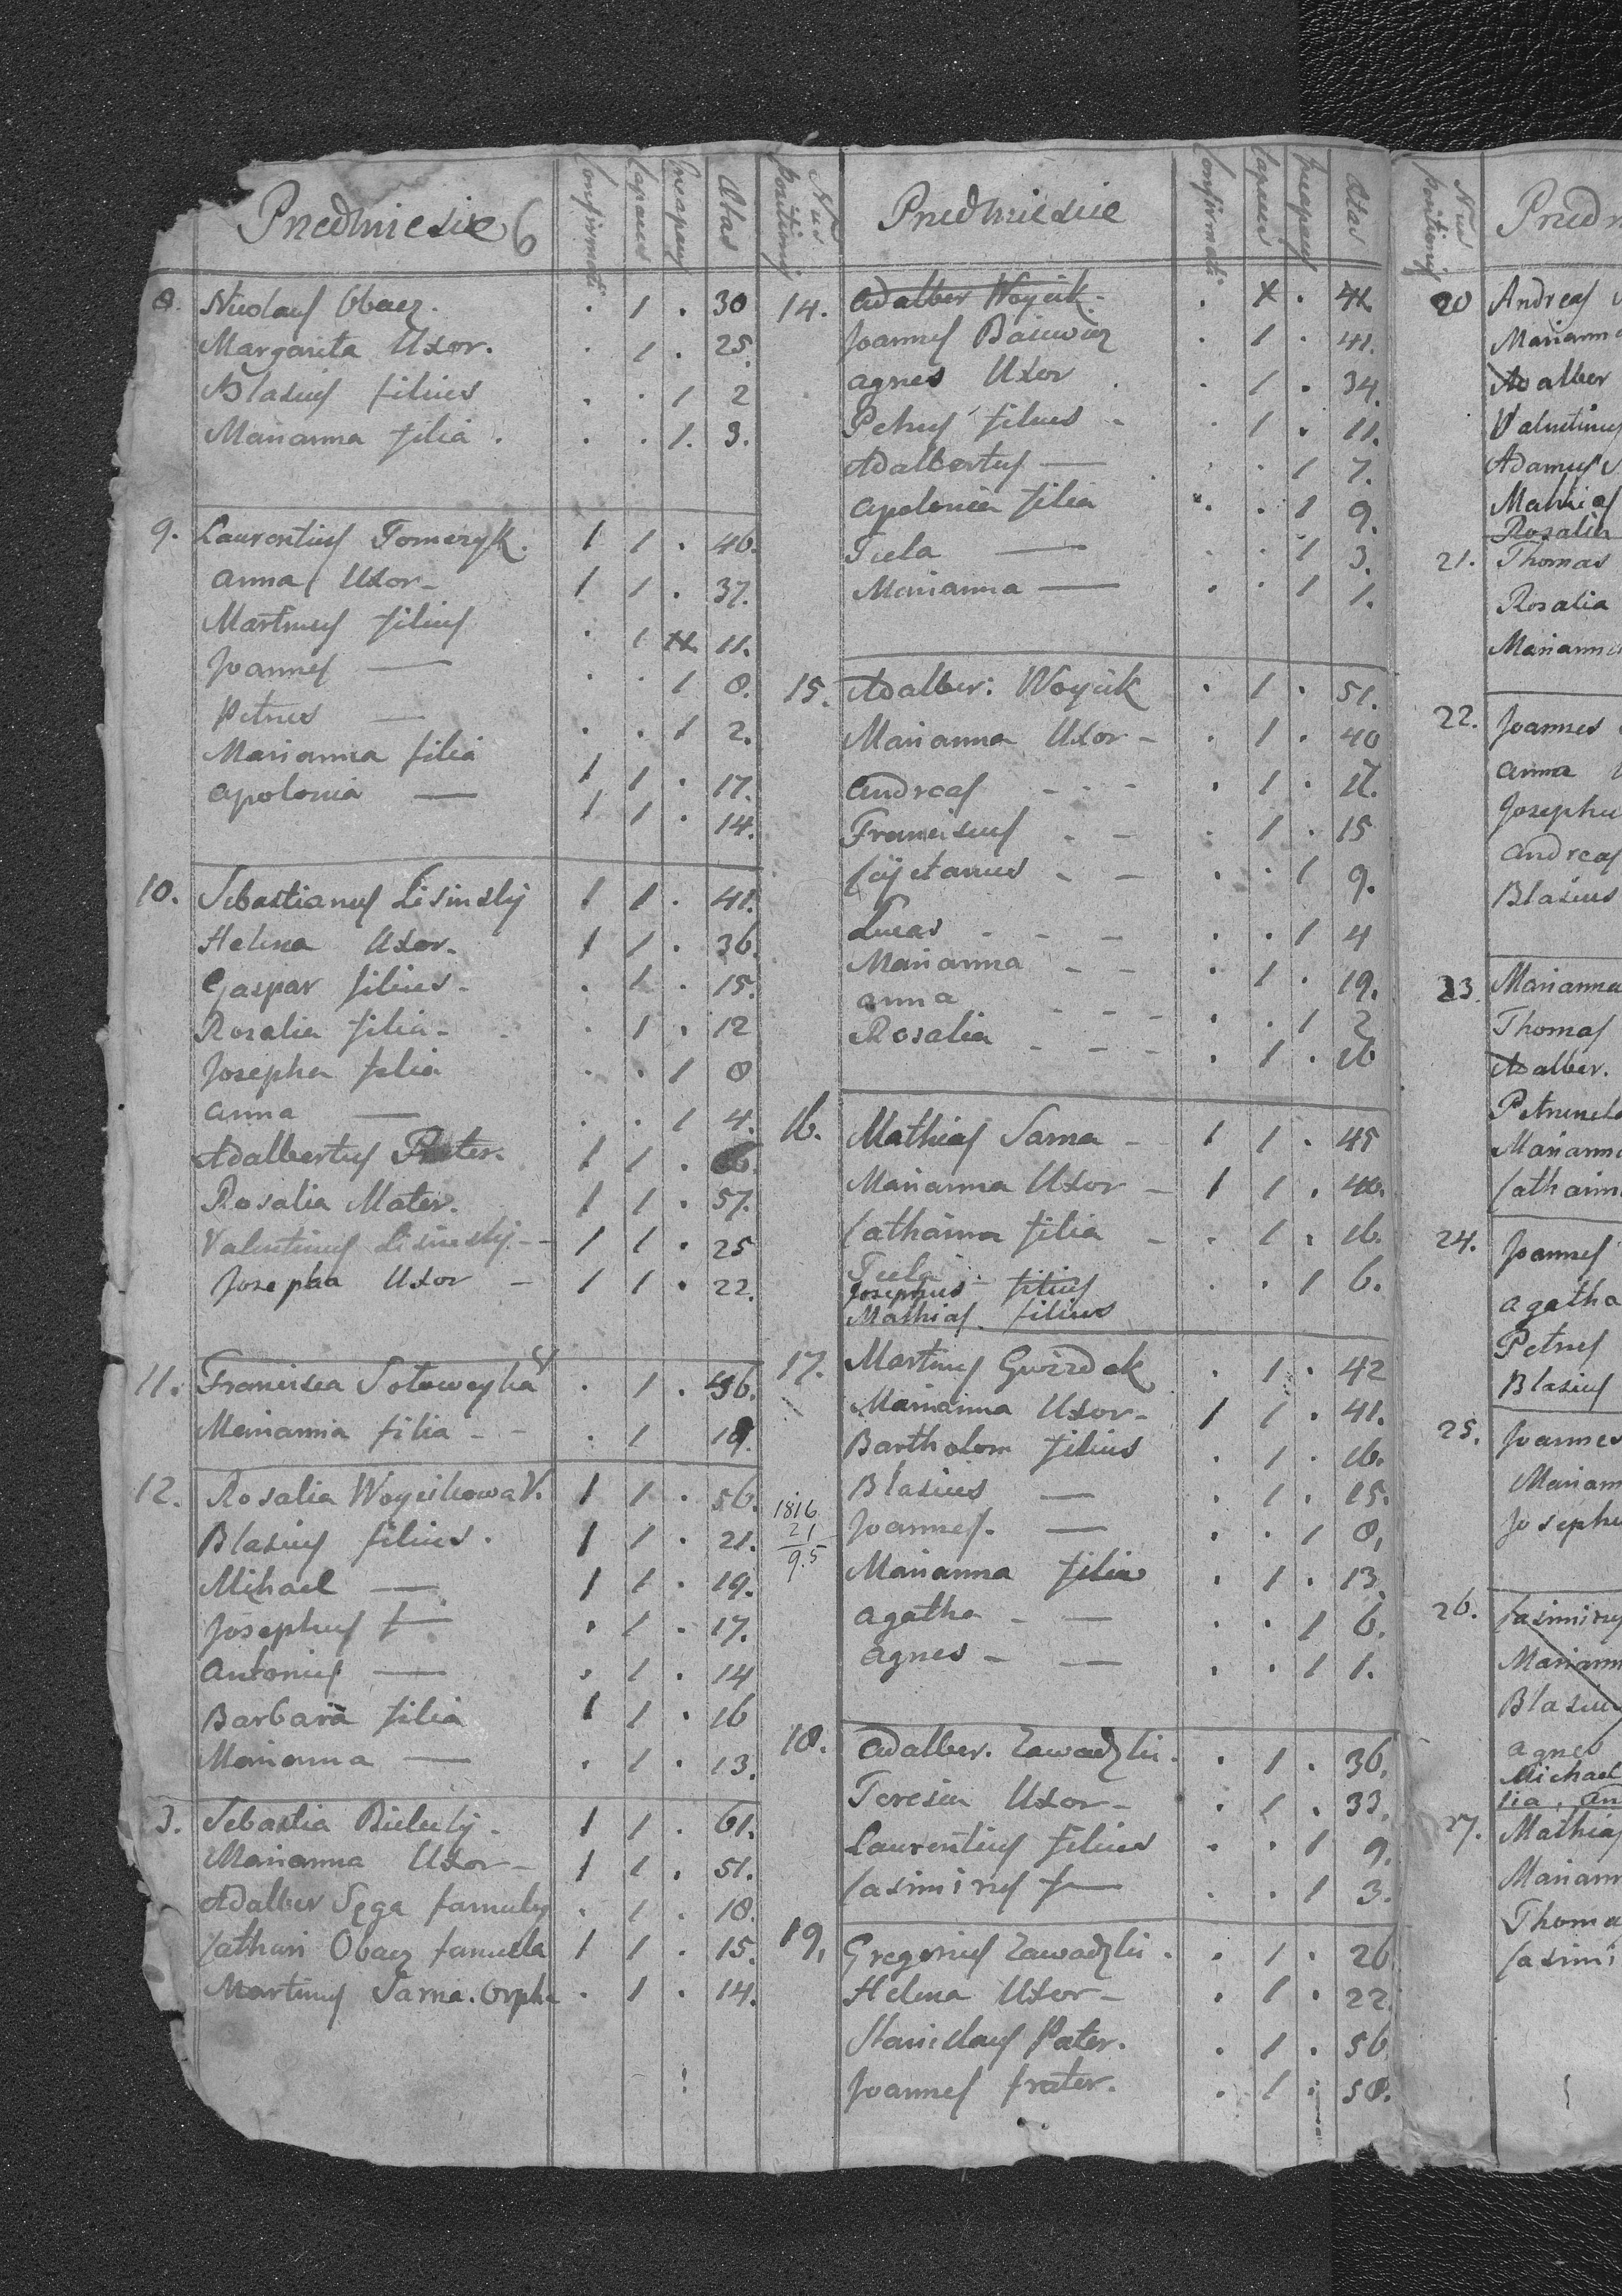 Przedmieście 6
Confirmati
Capaces
Incapaces
Ætas
8. Nicolaus Obacz. . 1 . 30
Margarita Uxor. . 1 . 25
Blasius filius . . 1 2
Marianna filia . . . 1. 3.
9. Laurentius Tomczyk. 1 1 . 40.
Anna Uxor - 1 1 . 37.
Martinus filius . 1 11.
Joannes — . . 1 8.
Petrus — . . 1 2.
Marianna filia 1 1 . 17.
Apolonia — 1 1 . 14.
10. Sebastianus Lisinskij 1 1 . 41.
Helena Uxor. 1 1 . 36.
Gaspar filius. . 1 . 15.
Rosalia filia - . 1 . 12
Josepha filia . . 1 8
Anna — . . 1 4.
Adalbertus Pater. 1 1 .
Rosalia Mater. 1 1 . 57.
Valentinus Lisinskij - 1 1 . 25
Josepha Uxor - 1 1 . 22.
11. Francisca V . 1 . 46.
Marianna filia - - . 1 19.
12. Rosalia Woycikowa V. 1 1 . 56.
Blasius filius. 1 1 . 21.
Mihael — 1 1 . 19.
Josephus f— . 1 . 17.
Antonius — . 1 . 14
Barbara filia 1 1 . 16
Marianna — . 1 . 13.
3. Sebastia 1 1 . 61.
Marianna Uxor - 1 1 . 51.
Adalber Sęga famulus . 1 . 18.
Cathari Obacz famula 1 1 . 15.
Martinus Sarna. Orpha . 1 . 14.
Nus positionis
Przedmieście
Confirmati.
Capaces
Incapaces
Ætas
14. Adalber Woycik. . 1 .
Joannes . 1 . 41.
Agnes Uxor . . 1 . 34.
Petrus filius - . 1 . 11.
Adalbertus — . . 1 7.
Apolonia filia . . 1 9.
Tecla — . . 1 3.
Marianna — . . 1 1.
15. Adalber: Woycik . 1 . 51.
Marianna Uxor - . 1 . 40
Andreas - - - . 1 . 17.
Franciscus - - . 1 . 15
Cajetanus - - . . 1 9.
Lucas - - - . . 1 4
Marianna - - . 1 . 19.
Anna - - - . . 1 2
Rosalia - - - . 1 . 16
16. Mathias Sarna - 1 1 . 45
Marianna Uxor - 1 1 . 40.
Catharina filia - . 1 . 16.
Tecla . . 1 6.
Josephus filius
Mathias filius
17. Martinus Gwizdak . 1 . 42
Marianna Uxor - 1 1 . 41.
Bartholom filius . 1 . 16.
Blasius — . 1 . 15.
1816
21
9.5
Joannes. — . . 1 8,
Marianna filia . 1 . 13.
Agatha - — . . 1 6.
Agnes - — . . 1 1.
18. Adalber. Zawadzki. . 1 . 36.
Teresia Uxor - . 1 . 33.
Laurentius filius . . 1 9.
Casimirus f— . . 1 3.
19, Gregorius Zawadzki . . 1 . 26
Helena Uxor - . 1 . 22.
Stanislaus Pater. . 1 . 56
Joannes frater. . 1 . 58.
Nus positionis
Przedm
20 Andreas
Marianna
Adalber
Valentinus
Adamus
Mathias
Rosalia
21. Thomas
Rosalia
Marianna
22. Joannes
Anna
Josephu
Andreas
Blasius
23. Marianna
Thomas
Adalber.
Petrunela
Marianna
Catharin
24. Joannes
Agatha
Petrus
Blasius
25. Joannes
Mariann
Josephu
26. Casimirus
Mariann
Blasius
Agnes
Michael
lia. An
27. Mathias
Mariann
Thoma
Casimi